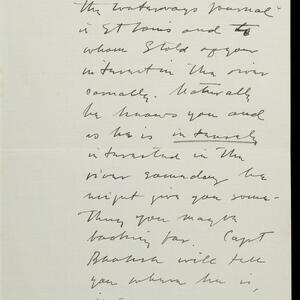 the Waterways Journal"
in St Louis and to
whom I told of your
interest in the river
 Naturally
he knows you and
as he is intensely
interested in the
river someday he
might give you some-
thing you maybe
looking for. Capt
 will tell
you whom he is,